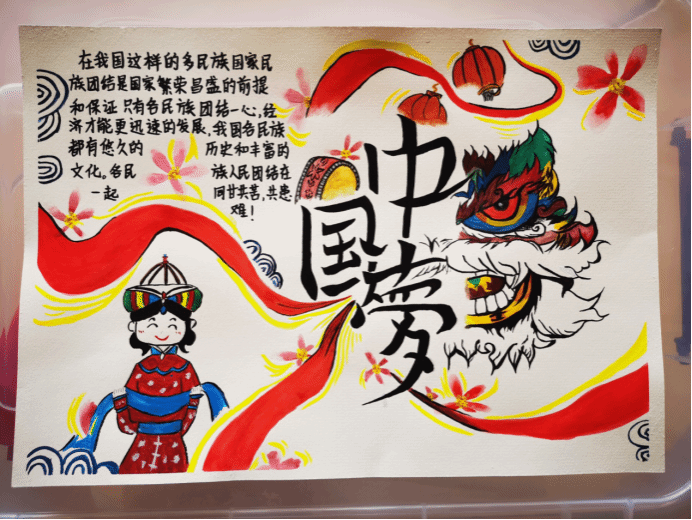 在我国这样的多民族国家民
族团结是国家繁荣昌盛的前提
和保证只有各民族团结一心,经
济才能更迅速的发展、我国各民族
都有悠久的 历史和丰富的
文化。各民 族人民团结在
一起 同甘共苦,共患
难！
中
国
梦